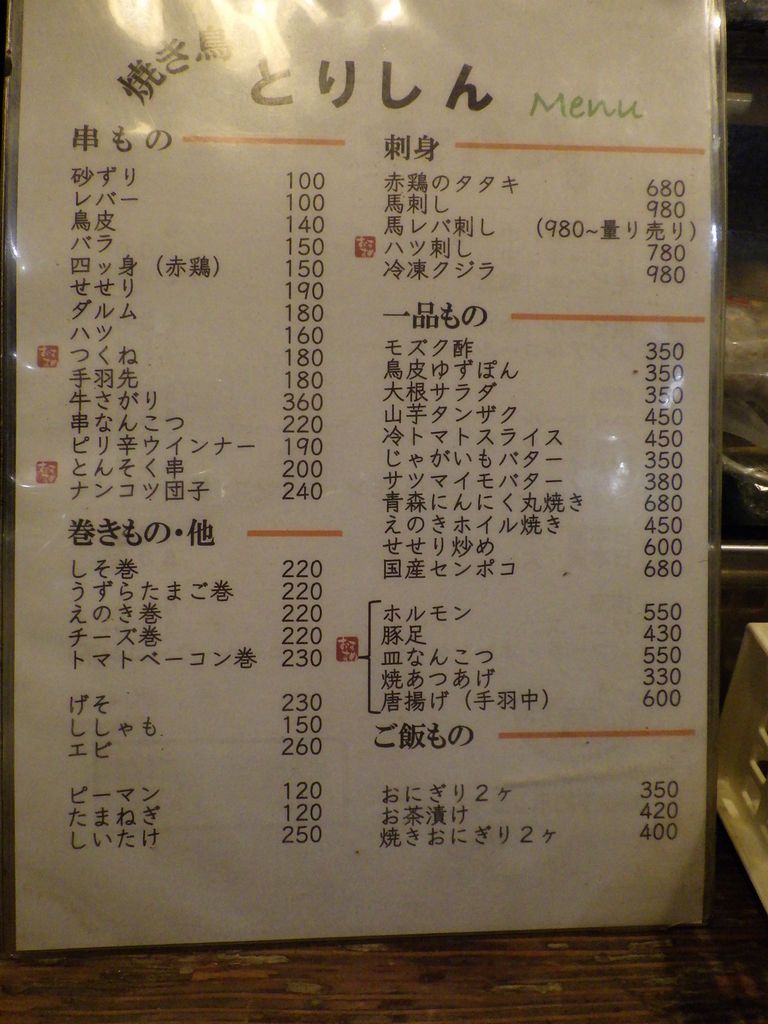 焼き鳥 とりしん Menu
串もの
砂ずり 100
レバー 100
鳥皮 140
バラ 150
四ッ身（赤鶏） 150
せせり 190
ダルム 180
ハツ 160
つくね 180
手羽先 180
牛さがり 360
串なんこつ 220
ピリ辛ウインナー 190
とんそく串 200
ナンコツ団子 240
巻きもの・他
しそ巻 220
うずらたまご巻 220
えのき巻 220
チーズ巻 220
トマトベーコン巻 230
げそ 230
ししゃも 150
エビ 260
ピーマン 120
たまねぎ 120
しいたけ 250
刺身
赤鶏のタタキ 680
馬刺し 980
馬レバ刺し （980~量り売り）
ハツ刺し 780
冷凍クジラ 980
一品もの
モズク酢 350
鳥皮ゆずぽん 350
大根サラダ 350
山芋タンザク 450
冷トマトスライス 450
じゃがいもバター 350
サツマイモバター 380
青森にんにく丸焼き 680
えのきホイル焼き 450
せせり炒め 600
国産センポコ 680
ホルモン 550
豚足 430
皿なんこつ 550
焼あつあげ 330
唐揚げ（手羽中） 600
ご飯もの
おにぎり２ヶ 350
お茶漬け 420
焼きおにぎり２ヶ 400